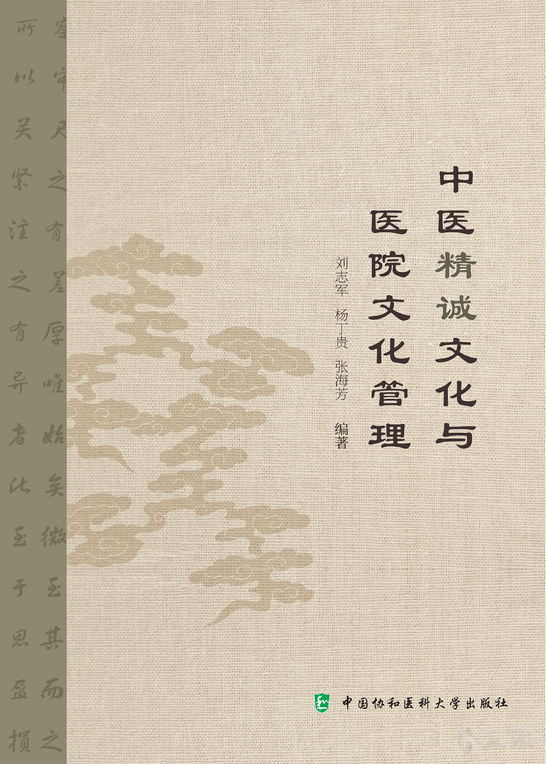 中医精诚文化与
医院文化管理
刘志军 杨丁贵 张海芳 编著
中国协和医科大学出版社
之有差厚唯始矣微至其而之
所以关紧注之有异者比至于思盈损